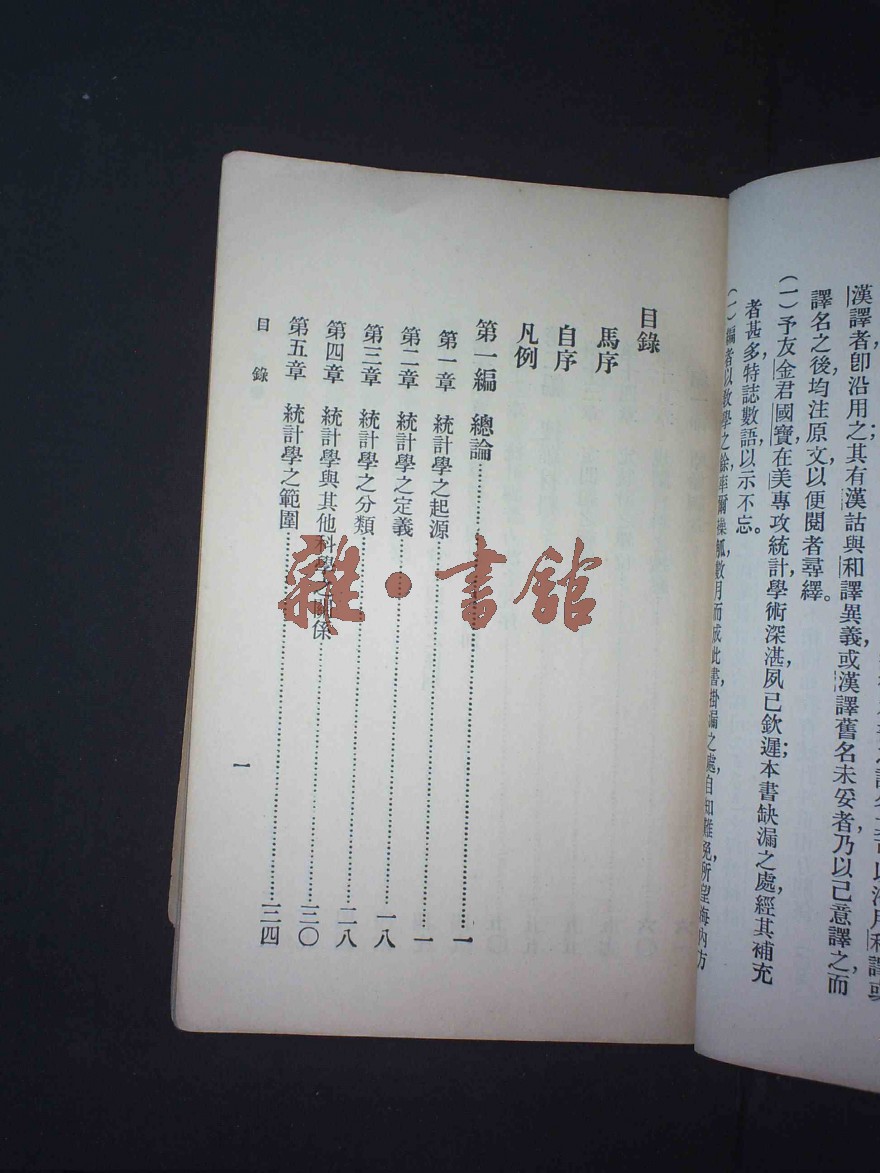 漢譯者,卽沿用之;其有漢詁與和譯異義,或漢譯舊名未妥者,乃以己意譯之,而
譯名之後,均注原文,以便閱者尋繹。
(一)予友金君國寶,在美專攻統計,學術深湛,夙已欽遲;本書缺漏之處,經其補充
者甚多,特誌數語,以示不忘。
(一)編者以教學之餘,率爾操觚,數月而成此書,掛漏之處,自知難免,所望海內方
目錄
馬序
自序
凡例
第一編 總論……一
第一章 統計學之起源……一
第二章 統計學之定義……一八
第三章 統計學之分類……二八
第四章 統計學與其他科學之關係……三〇
第五章 統計學之範圍……三四
目錄
一
雜·書館